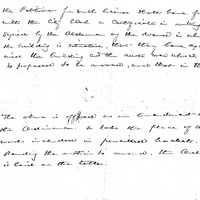 the Petition for such license shall have f
with the City Clerk a Certificate in writing
signed by the Alderman of the Ward in wh
the building is situate, that they have ex
ined the building and the route over which
is proposed to be moved, and that in th
The above is offered as an amendment
the Ordinance, to take the place of
words included in pencilled brackets.
Pending the motion to amend, the Ord
is laid on the table.